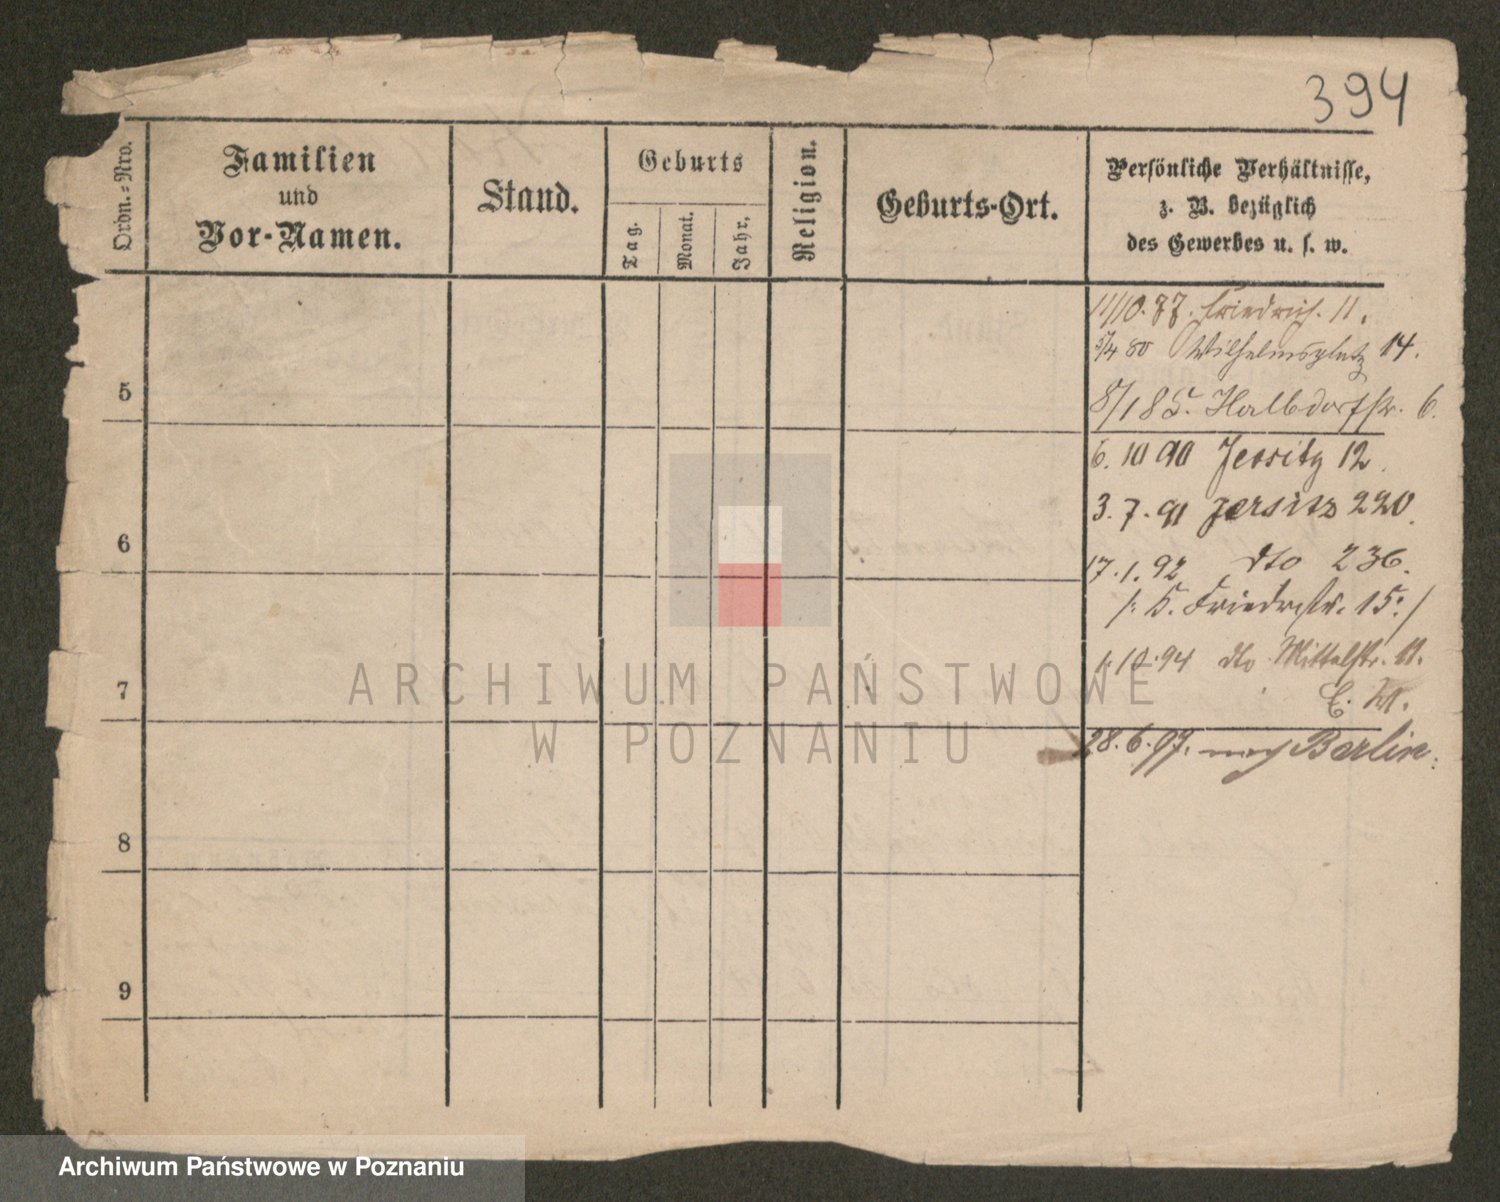 394
Ordn.-Nro.
Familien
und
Vor-Namen.
Stand.
Geburts
Tag.
Monat.
Jahr.
Religion.
Geburts-Ort.
Persönliche Verhältnisse,
z. B. bezüglich
des Gewerbes u. s. w.
11/10. 77. Friedrichst. 11.
5/4 80 Wilhelmsplatz 14.
5
8/1 85. Halbdorfstr. 6.
6. 10 90 Jersitz 12.
3. 7. 91 Jersitz 220.
6
17. 1. 92 dto 236.
/: K. Friedrstr. 15 :/
1. 10. 94 dto Mittelstr. 11.
7
28. 6. 97. nach Berlin.
8
9
ARCHIWUM PAŃSTWOWE
W POZNANIU
Archiwum Państwowe w Poznaniu